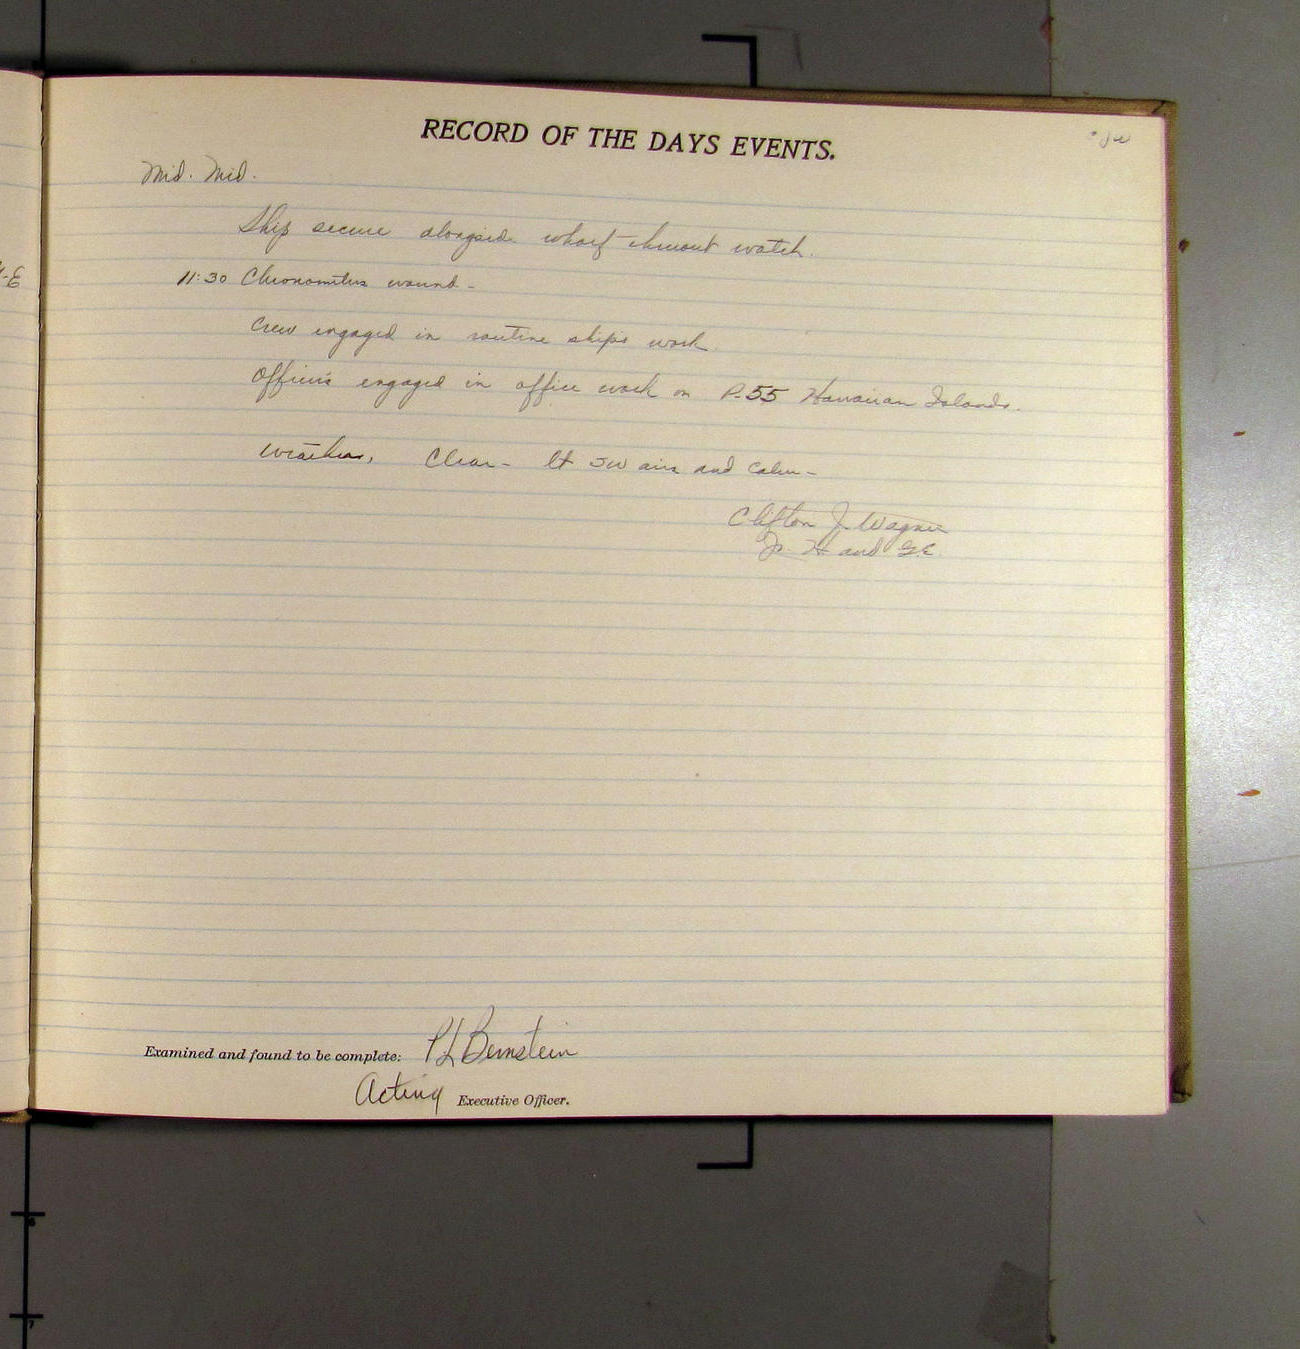 RECORD OF THE DAYS EVENTS.
Mid. Mid.
Ship secure alongside wharf thruout watch.
11:30 Chronometers wound -
Crew engaged in routine ships work.
Officers engaged in office work on P.55 Hawaiian Islands.
Weather, Clear - lt SW airs and calm -
Clifton J. Wagner
Jr. H and G.E.
Examined and found to be complete: PL Bernstein
Acting Executive Officer.
-E
6
7